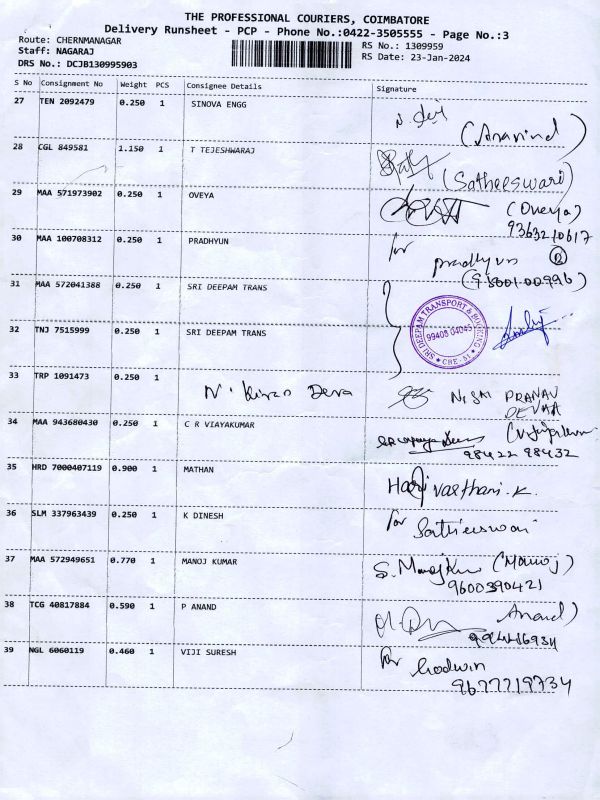 THE PROFESSIONAL COURIERS, COIMBATORE
Delivery Runsheet - PCP - Phone No.:0422-3505555 - Page No.:3
Route: CHERNMANAGAR
RS No.: 1309959
Staff: NAGARAJ
RS Date: 23-Jan-2024
DRS No.: DCJB130995903
S No Consignment No Weight PCS Consignee Details Signature
27 TEN 2092479 0.250 1 SINOVA ENGG
(Aravind)
28 CGL 849581 1.150 1 T TEJESHWARAJ
(Satheeswari)
29 MAA 571973902 0.250 1 OVEYA
(Oveya)
9363210617
30 MAA 100708312 0.250 1 PRADHYUN
for
pradhyun
31 MAA 572041388 0.250 1 SRI DEEPAM TRANS
SRI DEEPAM TRANSPORT & BOOKING
99408 04045
CBE - 51
32 TNJ 7515999 0.250 1 SRI DEEPAM TRANS
33 TRP 1091473 0.250 1
N. Kiran Deva
PRANAV
34 MAA 943680430 0.250 1 C R VIAYAKUMAR
98422 98432
35 HRD 7000407119 0.900 1 MATHAN
K.
36 SLM 337963439 0.250 1 K DINESH
for
37 MAA 572949651 0.770 1 MANOJ KUMAR
S. (Manoj)
9600390421
38 TCG 40817884 0.590 1 P ANAND
Anand)
39 NGL 6060119 0.460 1 VIJI SURESH
for
Godwin
9677719734